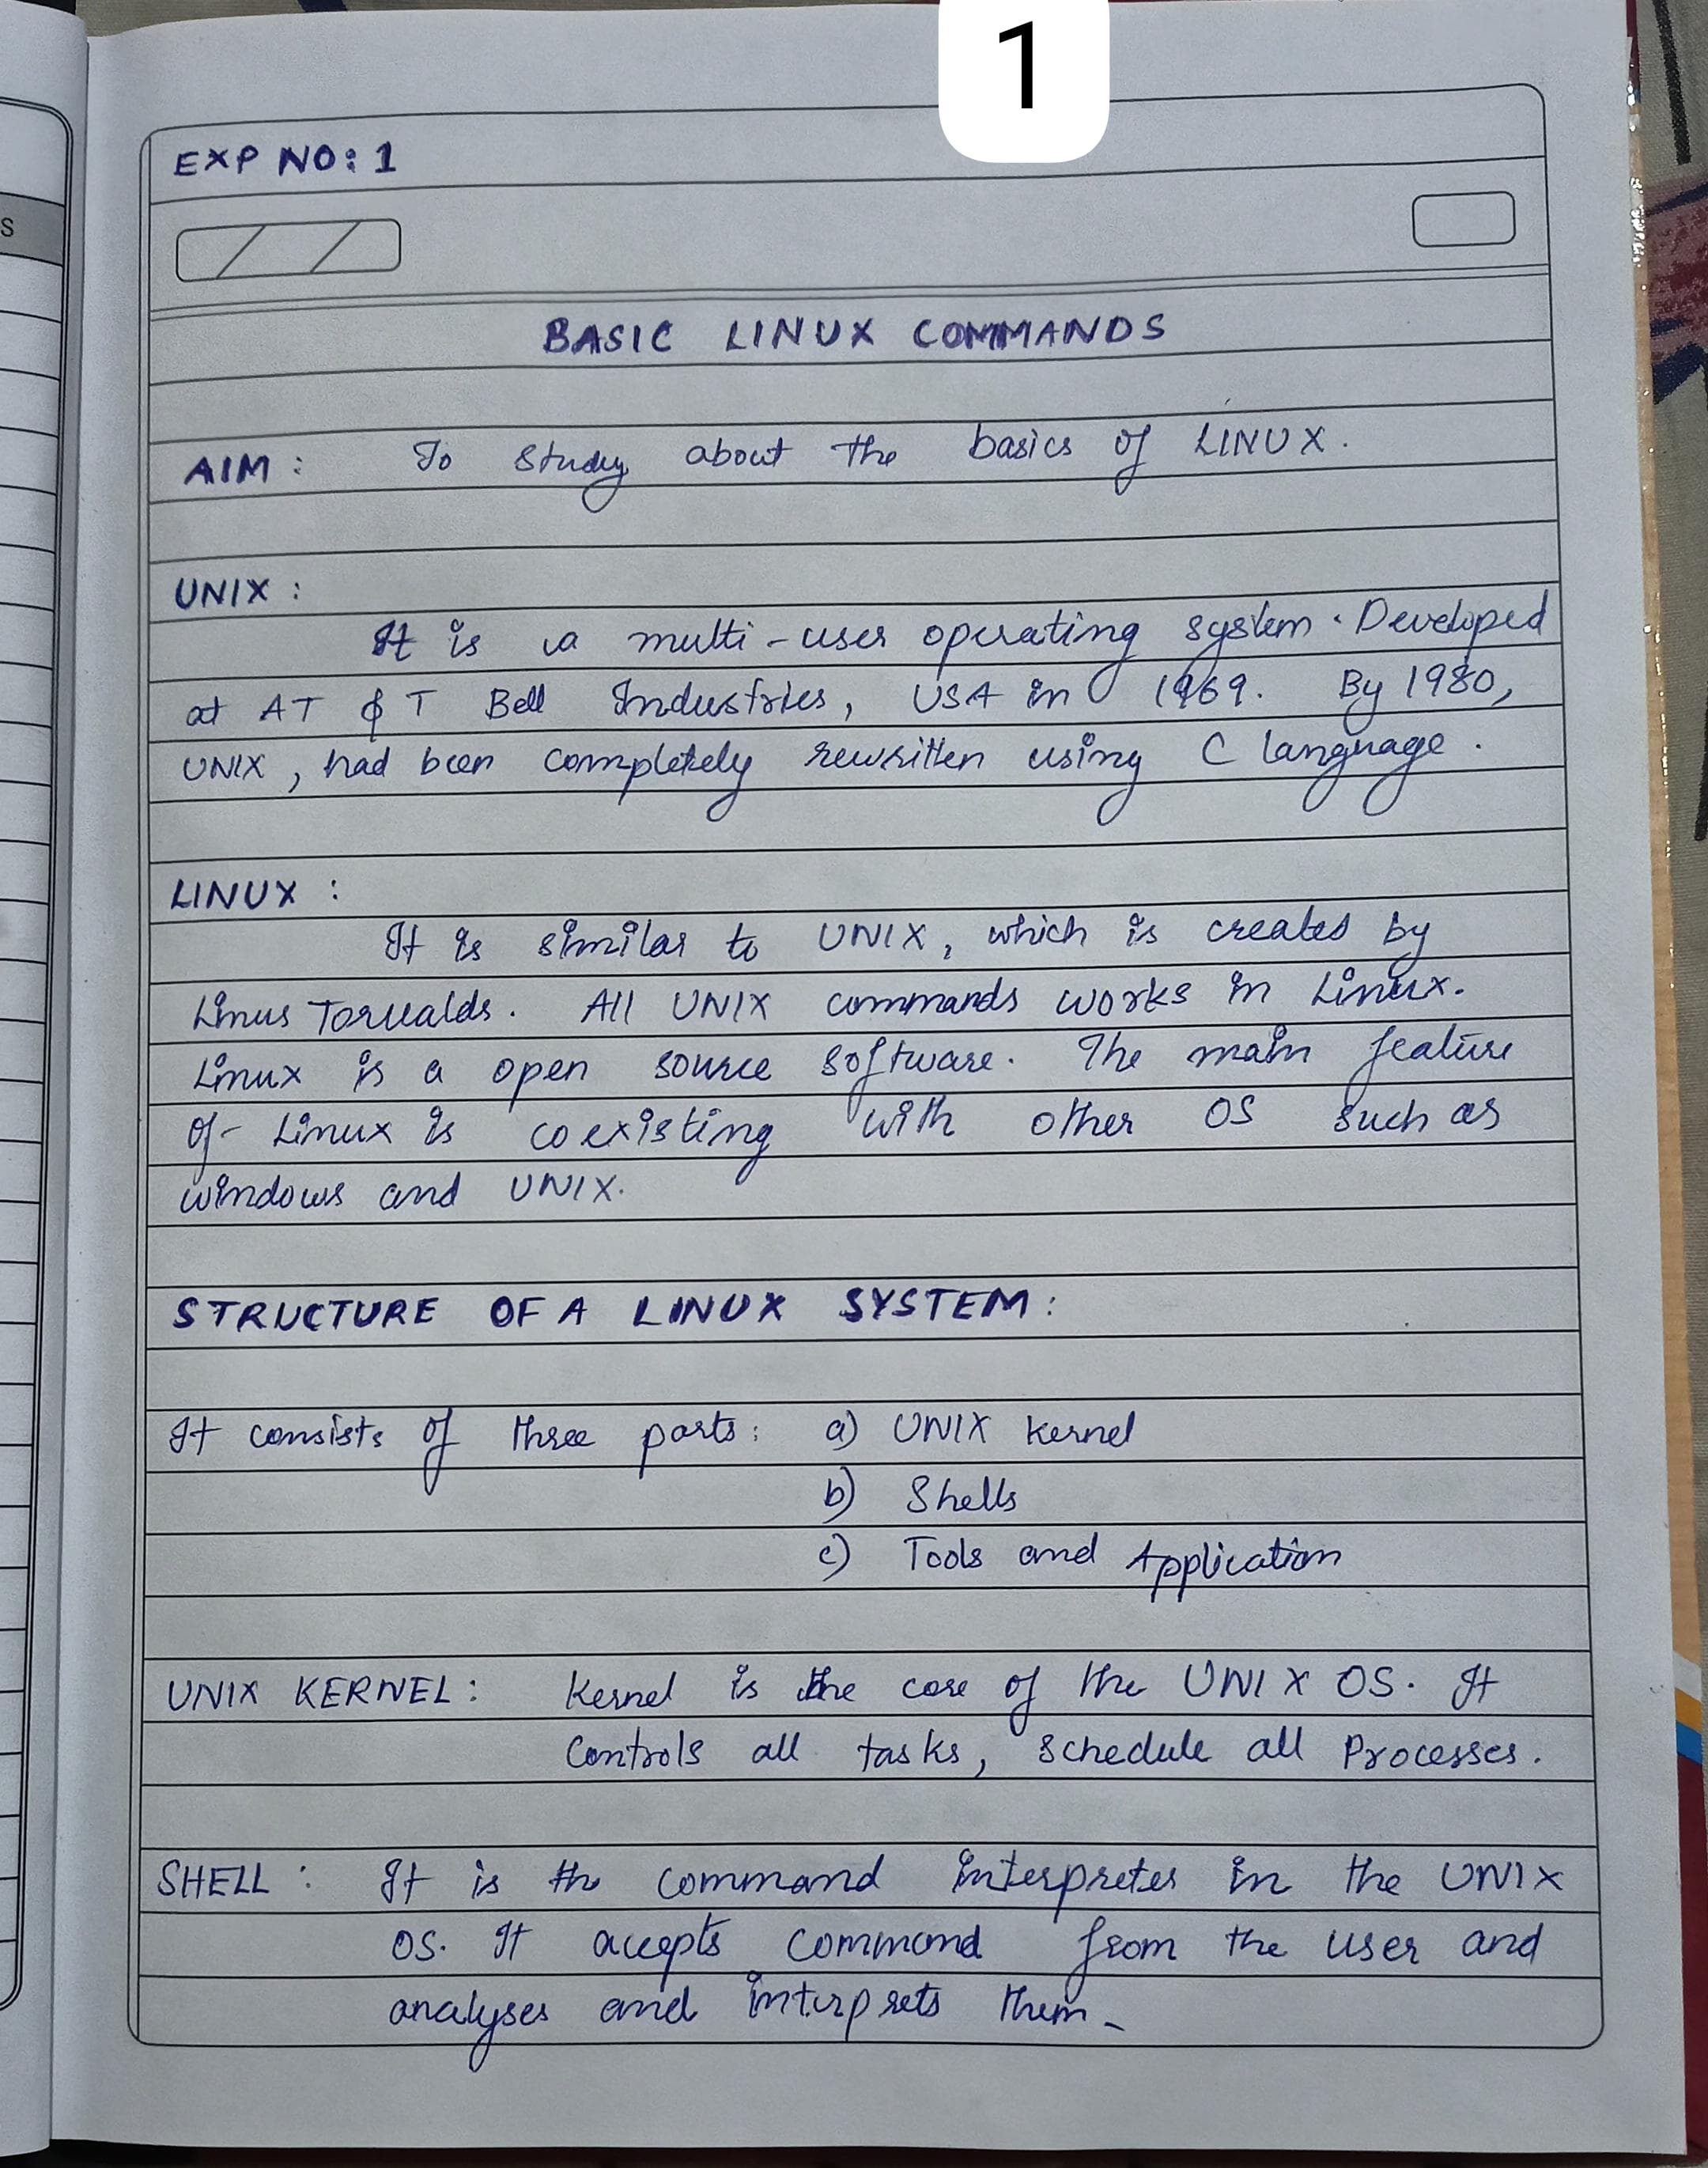 1
EXP NO: 1
S
BASIC LINUX COMMANDS
AIM : To study about the basics of LINUX.
UNIX :
It is a multi-user operating system. Developed
at AT & T Bell Industries, USA in 1969. By 1980,
UNIX, had been completely rewritten using C language.
LINUX :
It is similar to UNIX, which is created by
Linus Torvalds. All UNIX commands works in Linux.
Linux is a open source software. The main feature
of Linux is coexisting with other OS such as
windows and UNIX.
STRUCTURE OF A LINUX SYSTEM:
It consists of three parts: a) UNIX kernel
b) Shells
c) Tools and Application
UNIX KERNEL: Kernel is the core of the UNIX OS. It
controls all tasks, schedule all Processes.
SHELL : It is the command interpreter in the UNIX
OS. It accepts command from the user and
analyses and interprets them.